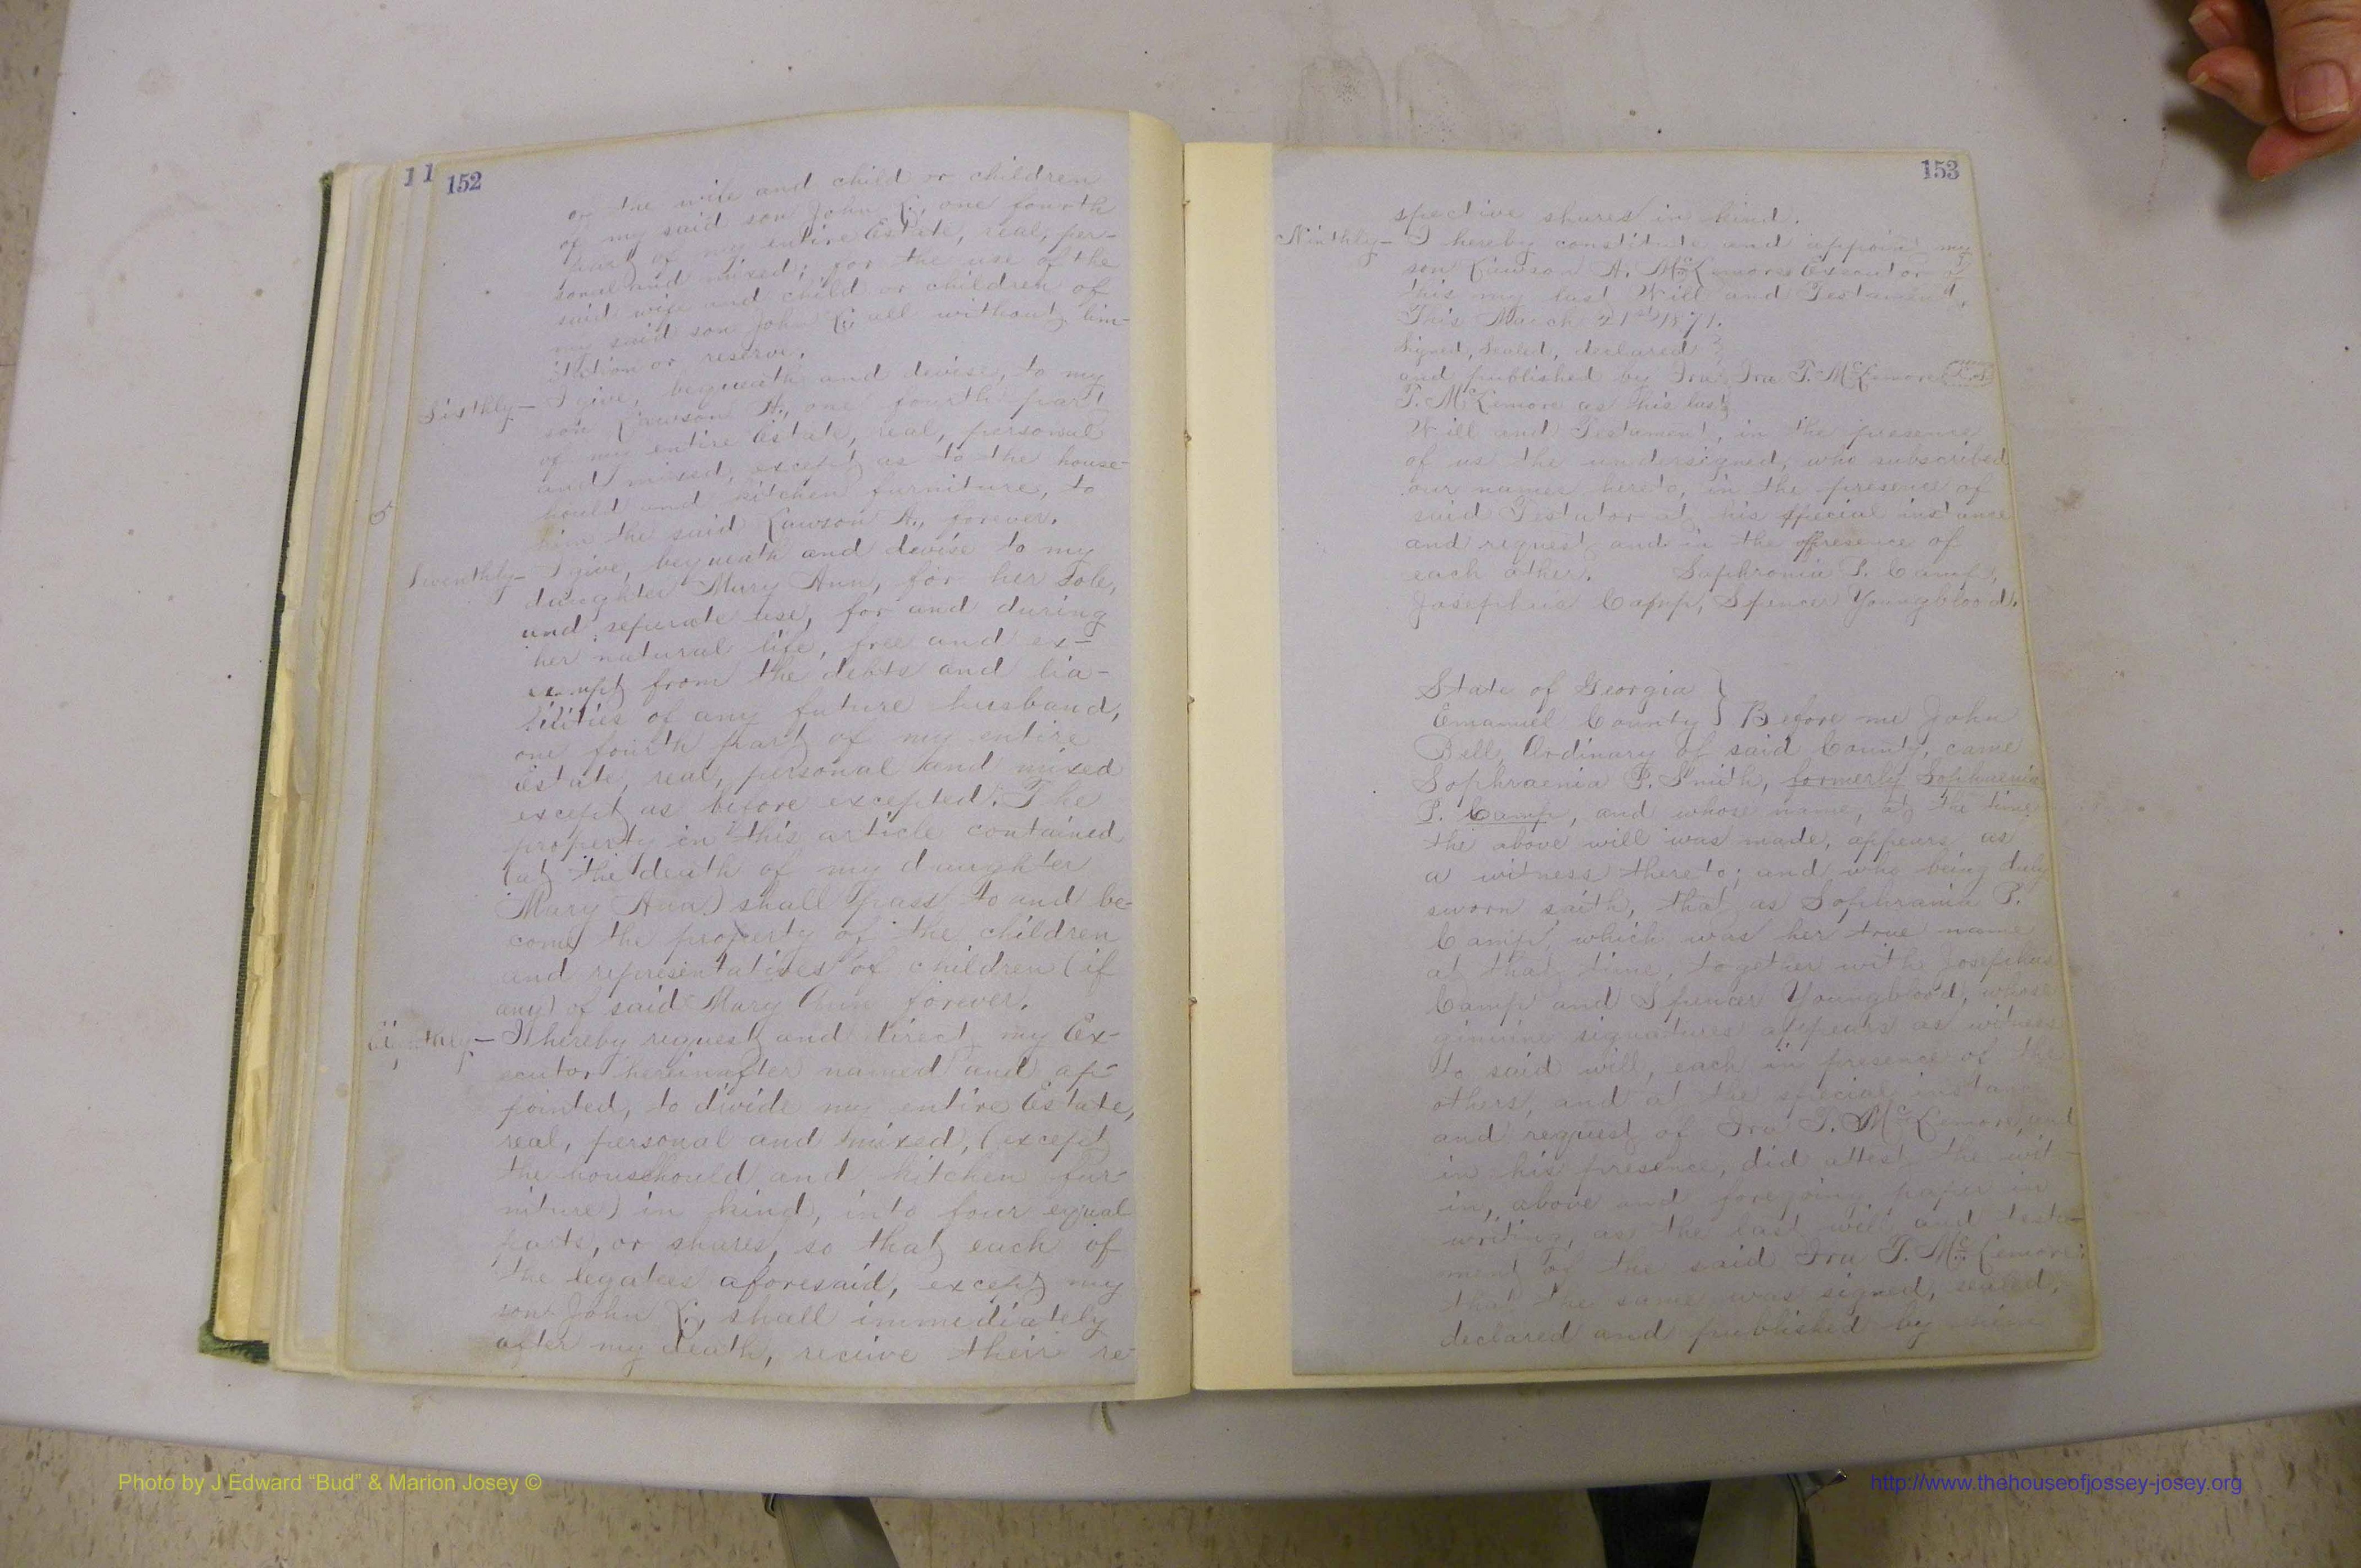 11 152
or the wife and child or children
of my said son John L., one fourth
part of my entire Estate, real, per-
sonal and mixed; for the use of the
said wife and child or children of
my said son John L., all without lim-
itation or reserve.
Sixthly— I give, bequeath and devise, to my
son Lawson A., one fourth part
of my entire Estate, real, personal
and mixed, except as to the house-
hould and kitchen furniture, to
him the said Lawson A., forever.
Seventhly— I give, bequeath and devise to my
daughter Mary Ann, for her sole,
and seperate use, for and during
her natural life, free and ex-
empt from the debts and lia-
bilities of any future husband,
one fourth part of my entire
Estate, real, personal and mixed
except as before excepted. The
property in this article contained
(at the death of my daughter
Mary Ann) shall pass to and be-
come the property of the children
and representatives of children (if
any) of said Mary Ann forever.
I hereby request and direct my Ex-
ecutor hereinafter named and ap-
pointed, to divide my entire Estate,
real, personal and mixed, (except
the househould and kitchen fur-
niture) in kind, into four equal
parts, or shares, so that each of
the legatees aforesaid, except my
son John L., shall immediately
after my death, receive their re-
153
spective shares in kind.
Ninthly— I hereby constitute and appoint my
son Lawson A. McLemore Executor of
this my last Will and Testament,
This March 21st 1871.
Signed, Sealed, declared }
and published by Ira Ira T. McLemore L.S.
T. McLemore as this last
Will and Testament, in the presence
of us the undersigned, who subscribed
our names hereto, in the presence of
said Testator at his special instance
and request and in the presence of
each other. Saphronia P. Camp,
Josephus Camp, Spencer Youngblood.
State of Georgia }
Emanuel County } Before me John
Bell, Ordinary of said County, came
Sophraenia P. Smith, formerly Sophraenia
P. Camp, and whose name, at the time
the above will was made, appears as
a witness thereto; and who being duly
sworn saith, that as Sophrania P.
Camp, which was her true name
at that time, together with Josephus
Camp and Spencer Youngblood, whose
genuine signatures appears as witness
to said will, each in presence of the
others, and at the special instance
and request of Ira T. McLemore, and
in his presence, did attest the wit-
in, above and foregoing paper in
writing, as the last will and testa-
ment of the said Ira T. McLemore:
that the same was signed, sealed,
declared and published by
Photo by J Edward “Bud” & Marion Josey ©
http://www.thehouseofjossey-josey.org